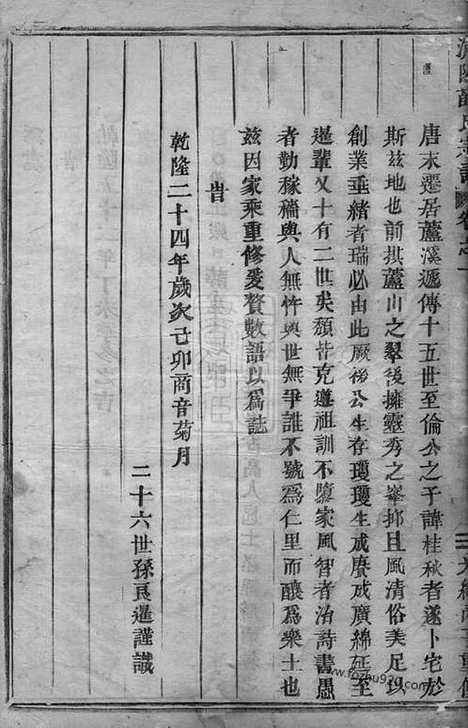 唐末遷居蘆溪遞傳十五世至倫公之子諱桂秋者遂卜宅於
斯兹地也前拱蘆山之翠後擁靈秀之峯抑且風清俗美足以
創業垂緒者瑞必由此厥後公生存瓊瓊生成賡成廣綿延至
暹輩又十有二世矣頽皆克遵祖訓不墮家風智者治詩書愚
者勤稼穡與人無忤與世無爭誰不號為仁里而釀為樂土也
兹因家乘重修爰贅數語以為誌
旹
乾隆二十四年歲次己卯商音菊月
二十六世孫良暹謹識
www.fozhu920.com